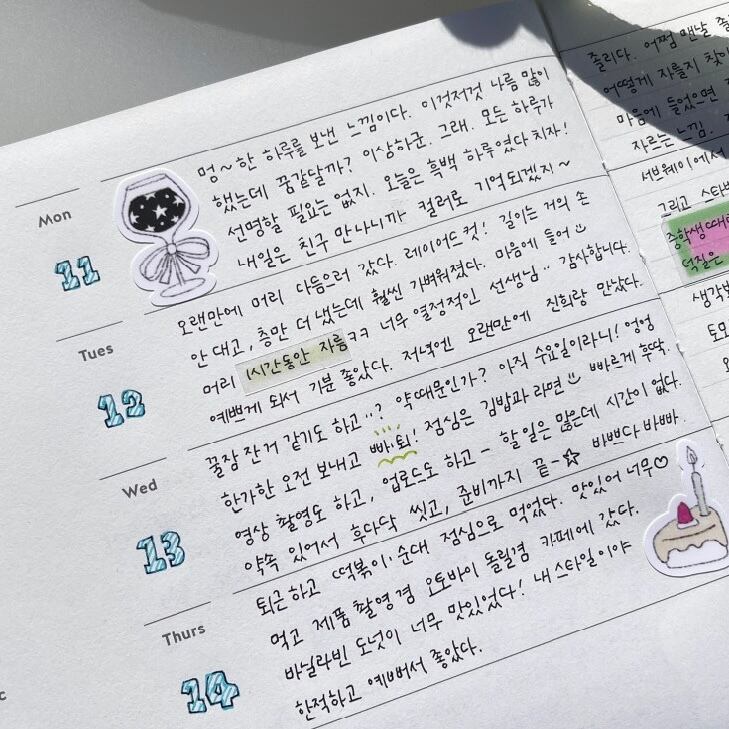 Mon
11
멍~한 하루를 보낸 느낌이다. 이것저것 나름 많이
했는데 꿈같달까? 이상하군. 그래. 모든 하루가
선명할 필요는 없지. 오늘은 흑백 하루였다 치자!
내일은 친구 만나니까 컬러로 기억되겠지~
Tues
12
오랜만에 머리 다듬으러 갔다. 레이어드컷! 길이는 거의 손
안 대고, 층만 더 냈는데 훨씬 가벼워졌다. 마음에 들어
머리 1시간동안 자름ㅋㅋ 너무 열정적인 선생님.. 감사합니다.
예쁘게 되서 기분 좋았다. 저녁엔 오랜만에 진희랑 만났다.
Wed
13
꿀잠 잔거 같기도 하고..? 약때문인가? 아직 수요일이라니! 엉엉
한가한 오전 보내고 빠.퇴! 점심은 김밥과 라면 빠르게 후딱.
영상 촬영도 하고, 업로드도 하고- 할 일은 많은데 시간이 없다.
약속 있어서 후다닥 씻고, 준비까지 끝-☆ 바쁘다 바빠.
Thurs
14
퇴근하고 떡볶이·순대 점심으로 먹었다. 맛있어 너무♡
먹고 제품 촬영 겸 오토바이 돌릴겸 카페에 갔다.
바닐라빈 도넛이 너무 맛있었다! 내 스타일이야
한적하고 예뻐서 좋았다.
졸리다. 어쩜 맨날 졸
어떻게 자를지 찾아
마음에 들었으면
자르는 느낌.
서브웨이에서
그리고 스타벅
중학생때
덕질은
생각보
토모